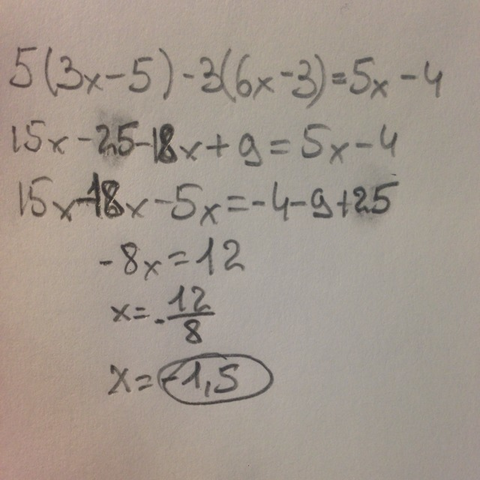 5(3x-5)-3(6x-3)=5x-4
15x-25-18x+9=5x-4
15x-18x-5x=-4-9+25
-8x=12
x=-12/8
x=-1,5